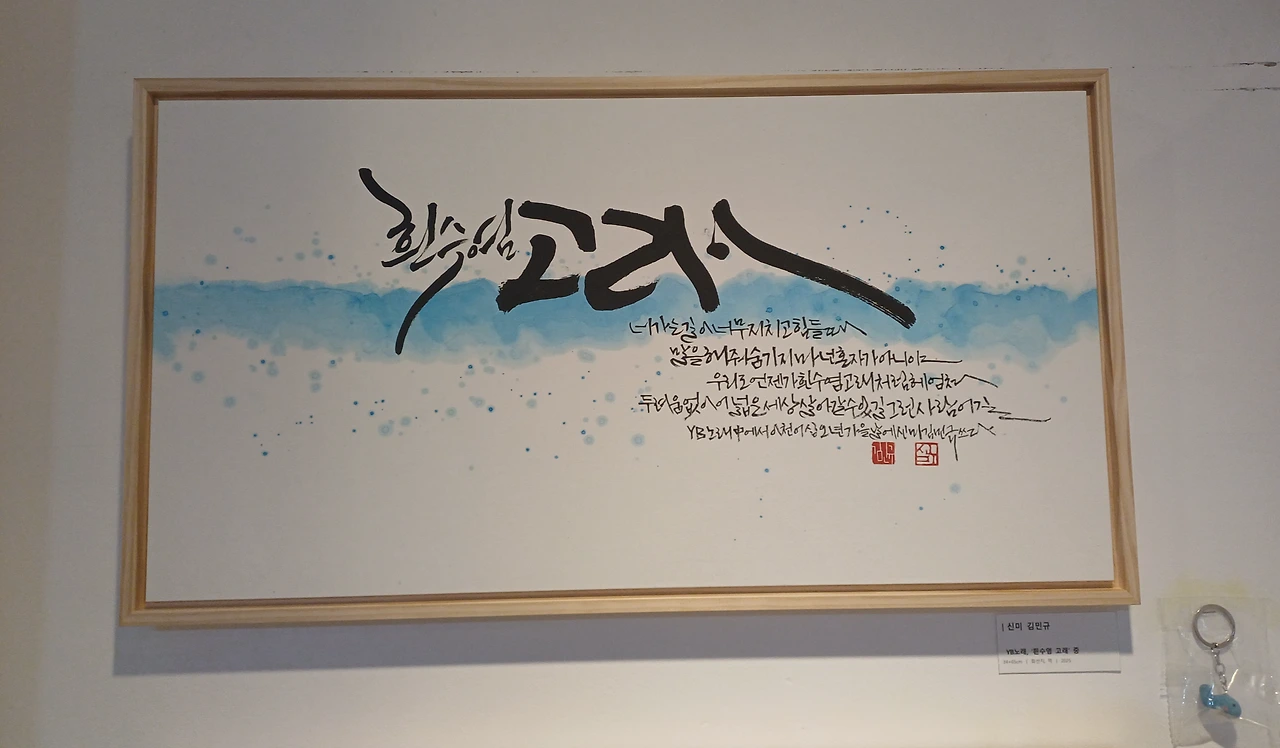 흰수염고래
너 가는 길이 너무 지치고 힘들 때
말을 해줘 숨기지 마 넌 혼자가 아니야
우리도 언젠가 흰수염고래처럼 헤엄쳐
두려움 없이 이 넓은 세상 살아갈 수 있길 그런 사람이길
YB노래 中에서 이천이십오년 가을날에 신미 김민규 쓰다
| 신미 김민규
YB노래, '흰수염 고래' 중